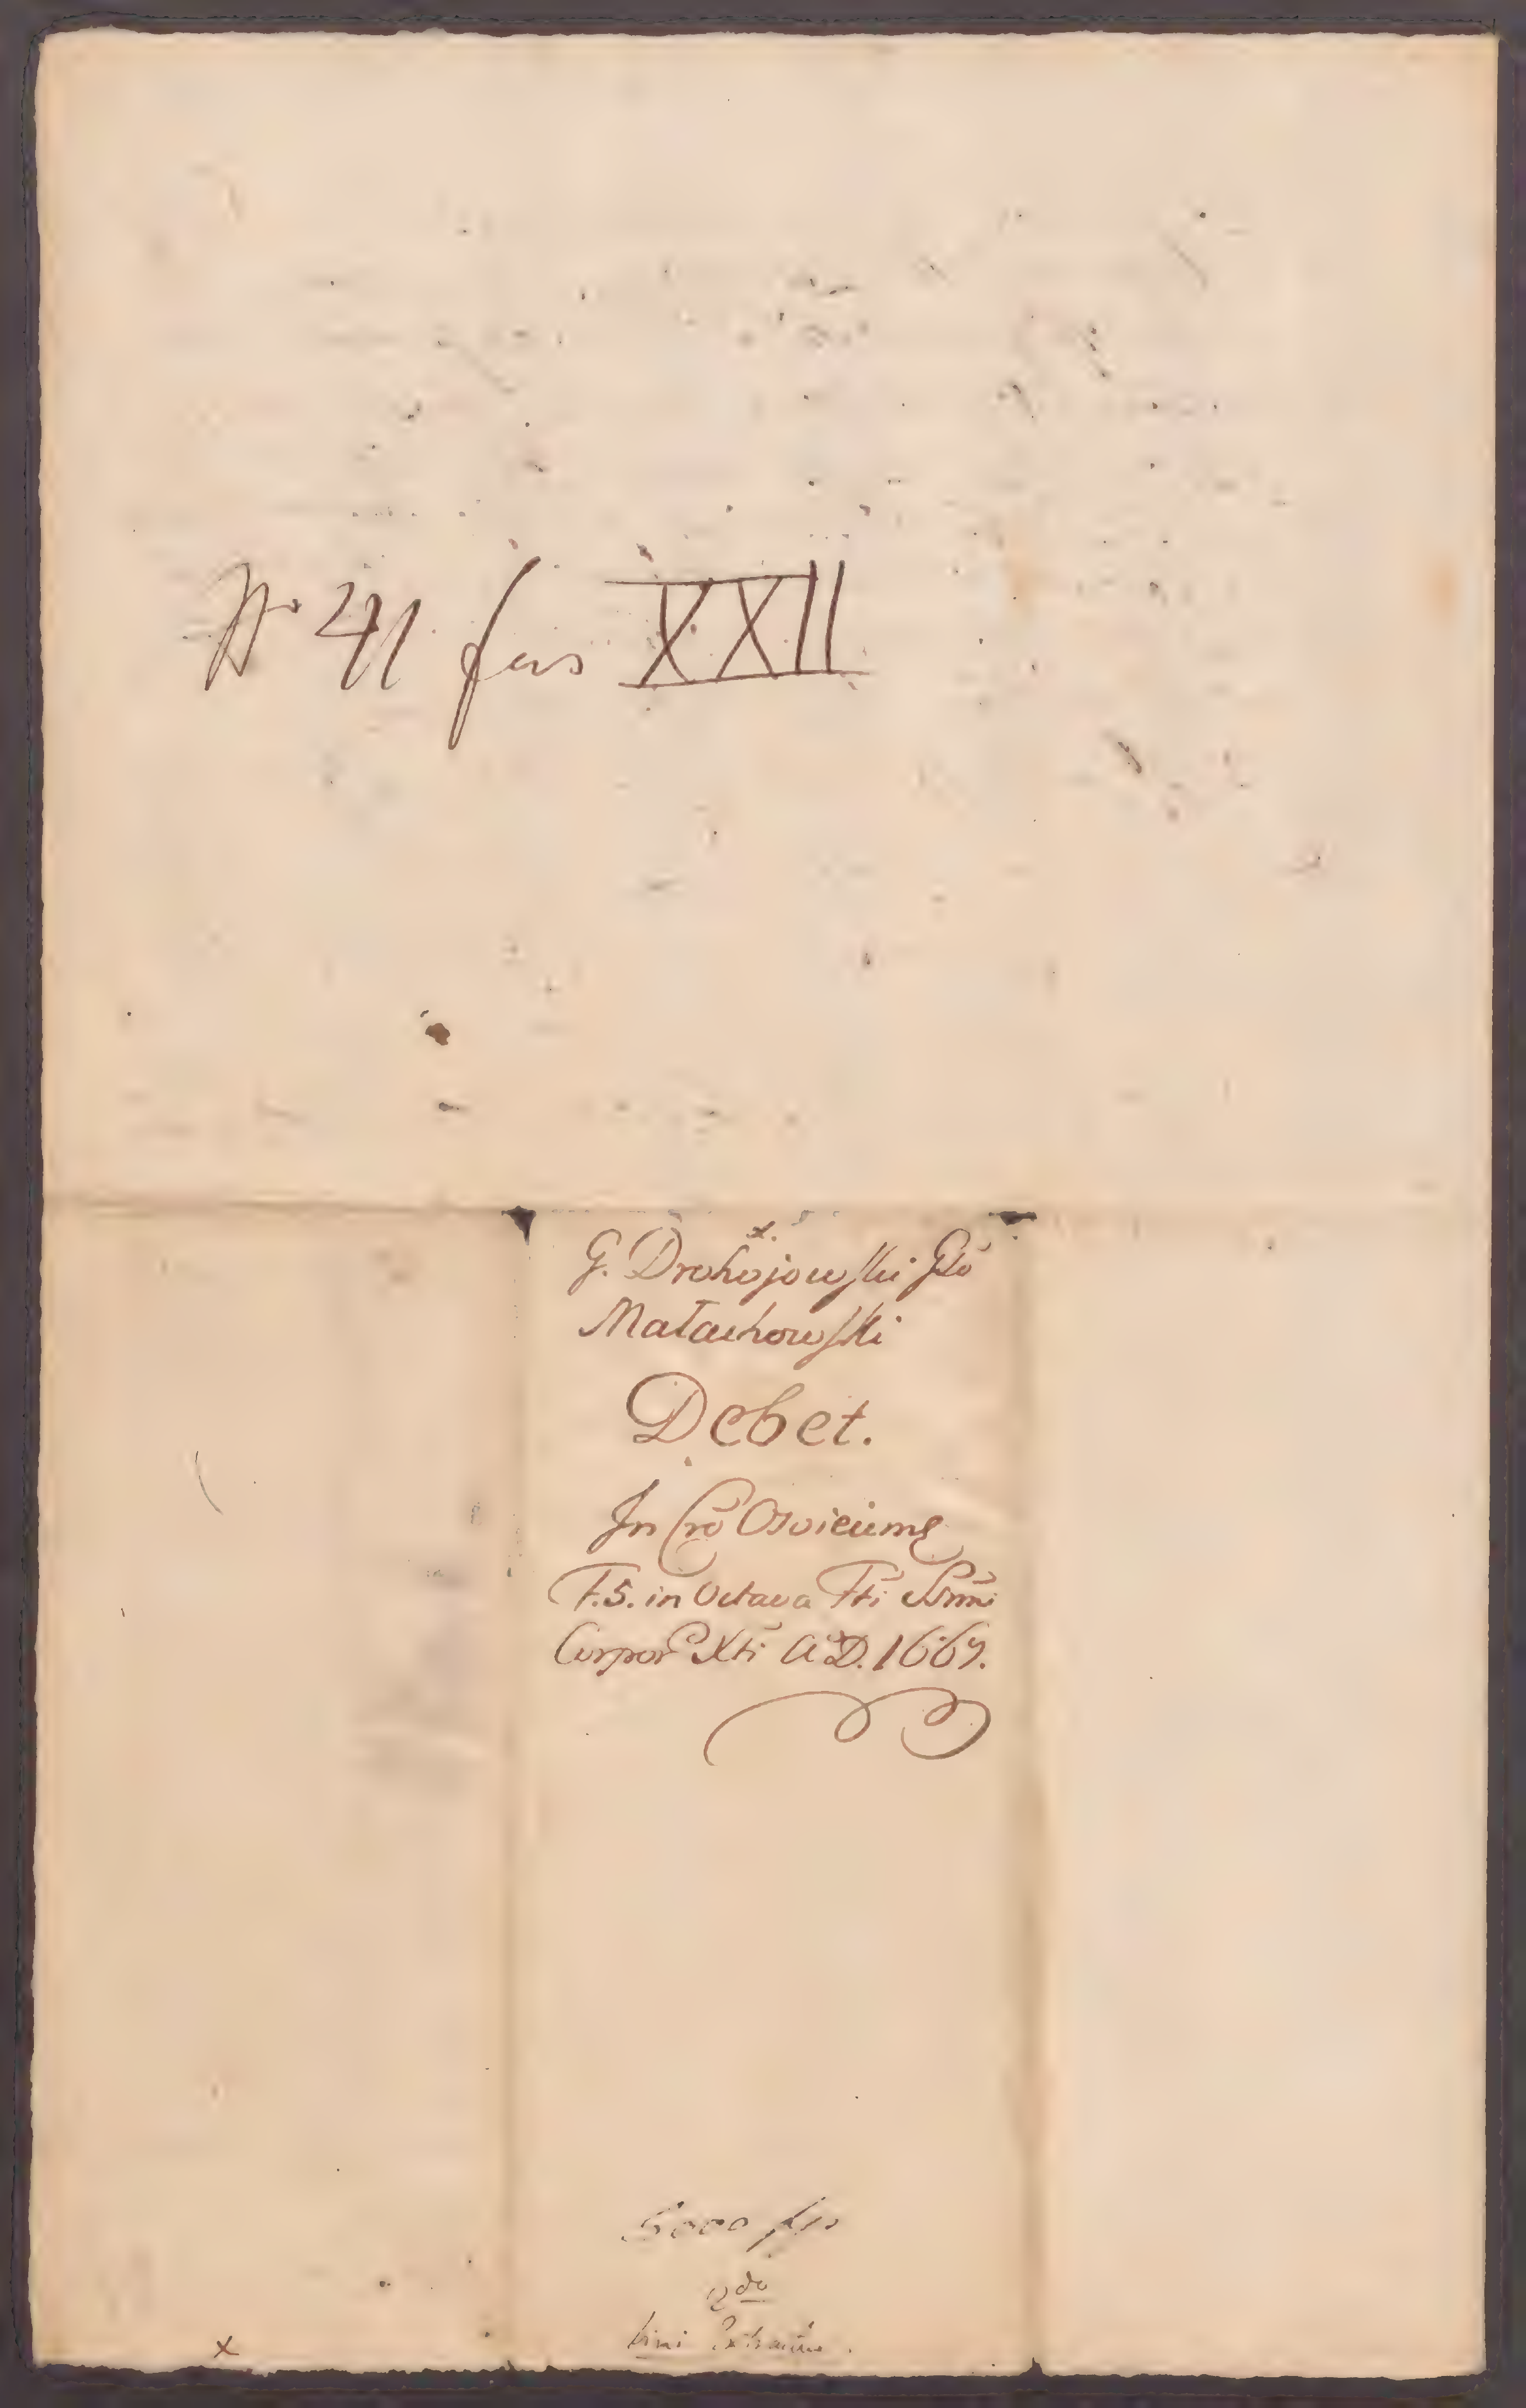 No 41 fas XXII
x.
G. Drohojowski Gło
Małachowski
Debet.
In Cro Osviecime
F. 5. in Octava Fti Ssmi
Corpor Xti A D. 1669.
5000 flp
2do
bini Extractus.
x